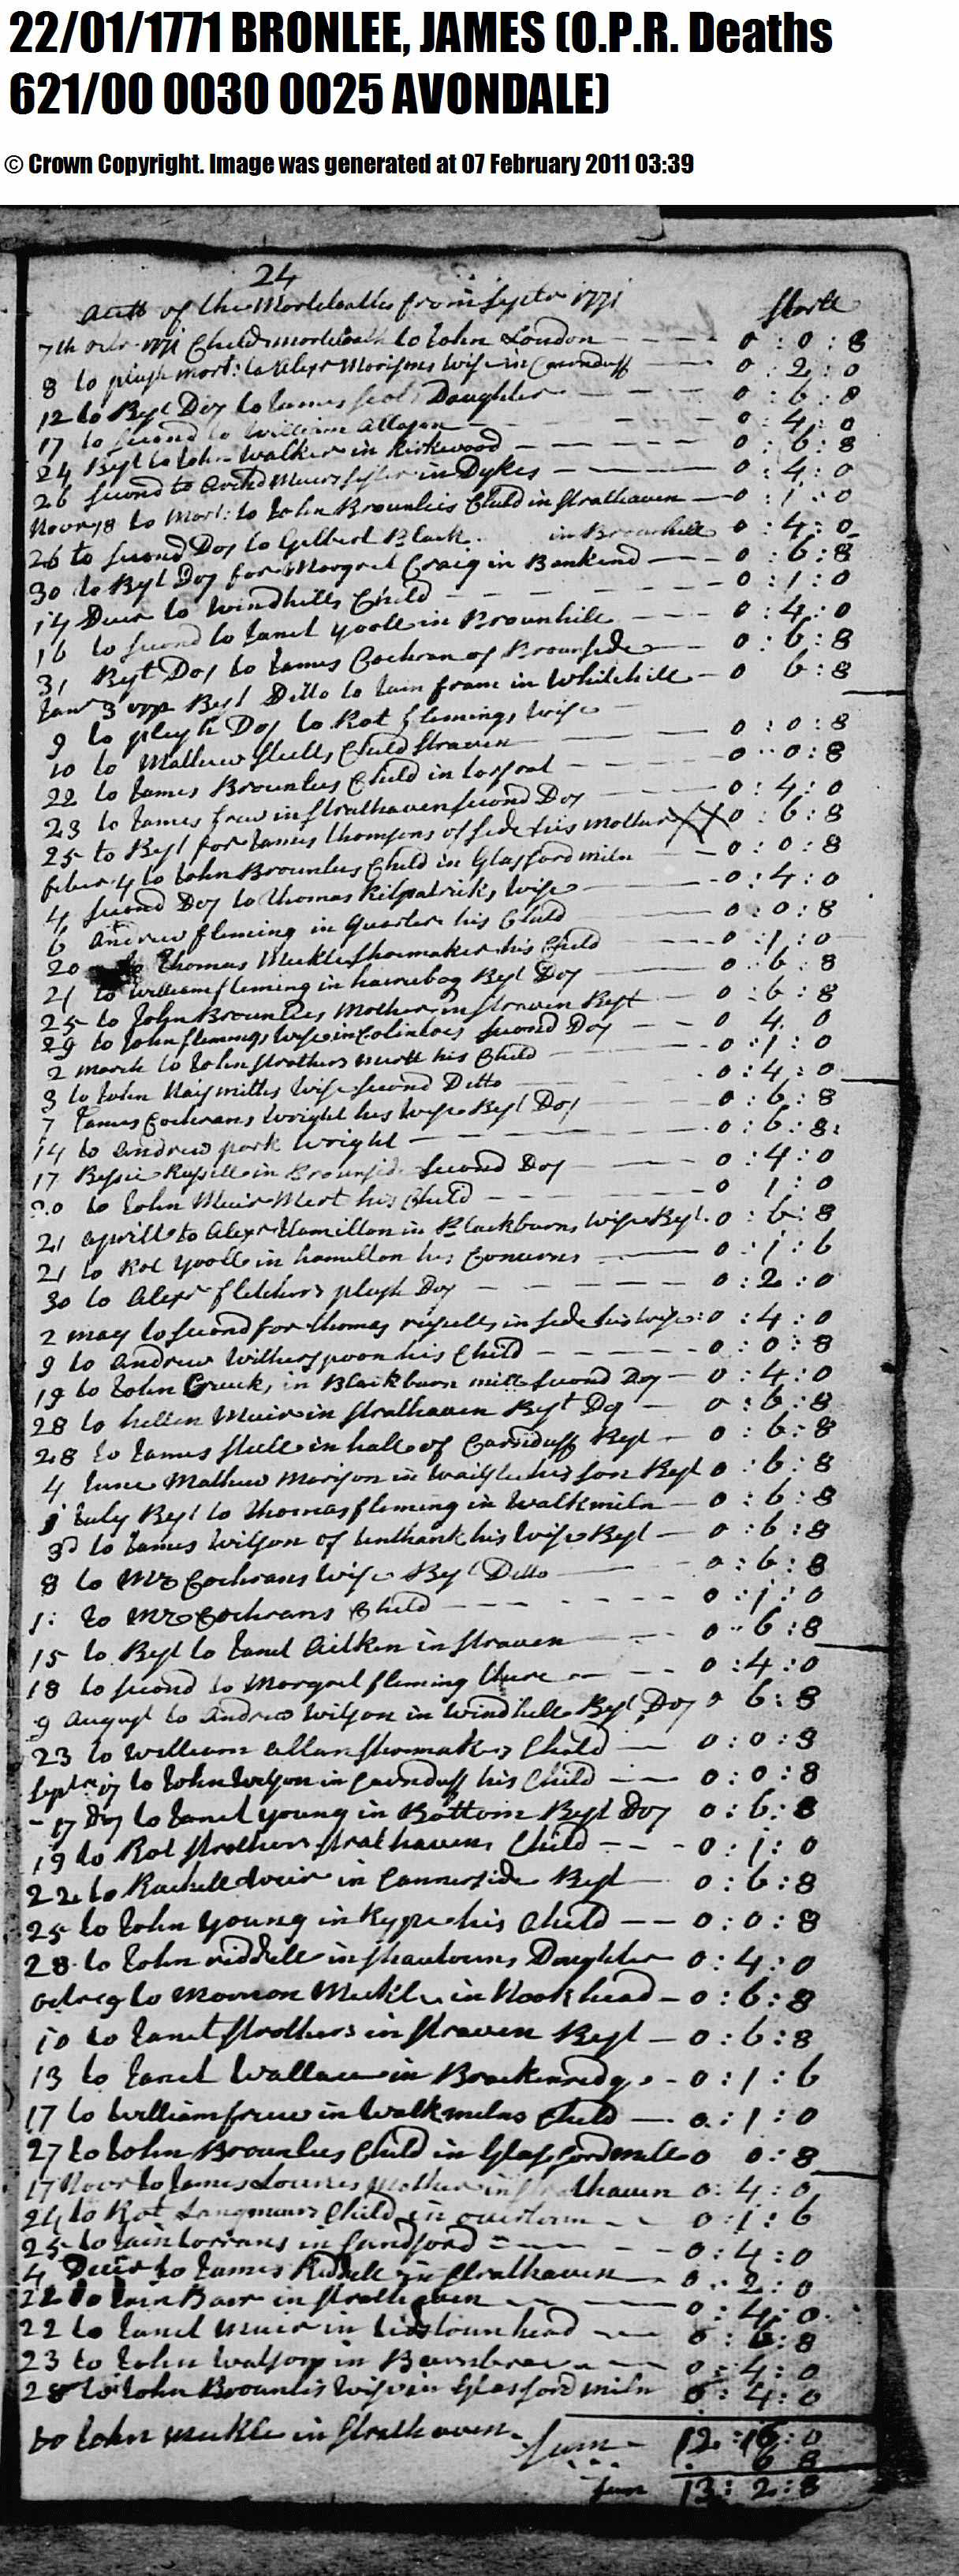 22/01/1771 BRONLEE, JAMES (O.P.R. Deaths
621/00 0030 0025 AVONDALE)
© Crown Copyright. Image was generated at 07 February 2011 03:39
24
of the Mortcloaths from Septr 1771 Sterll
7th octr 1771 Child mortcloath to John Loudon 0 : 0 : 8
8 to plush mort: to Alexr Morisons wife in Carnduff 0 : 2 : 0
12 to Best Doy to James Scots Daughter 0 : 6 : 8
17 to second to William Allason 0 : 4 : 0
24 Best to John Walker in Kirkwood 0 : 6 : 8
26 second to Archd Muirs sister in Dykes 0 : 4 : 0
Novr 18 to Mort: to John Brounlies Child in Strathaven 0 : 1 : 0
26 to second Doy to Gilbert Black in Brounhill 0 : 4 : 0
30 to Best Doy for Margret Craig in Bankend 0 : 6 : 8
14 Decr to Windhills Child 0 : 1 : 0
16 to second to Janet Yooll in Brounhill 0 : 4 : 0
31 Best Doy to James Cochran of Brounside 0 : 6 : 8
Janr 3 Best Ditto to Jain frame in Whitehill 0 6 : 8
9 to plush Doy to Rot flemings wife
10 to Mathew Steills Child Straven 0 : 0 : 8
22 to James Brounlies Child in 0 : 0 : 8
23 to James frew in Strathaven second Doy 0 : 4 : 0
25 to Best for James Thomsons of side his Mother 0 : 6 : 8
febur 4 to John Brounlies Child in Glasford miln 0 : 0 : 8
4 second Doy to Thomas Kilpatricks wife 0 : 4 : 0
6 Andrew fleming in Quarter his Child 0 : 0 : 8
20 to Thomas Meikle Shoemaker his Child 0 : 1 : 0
21 to William fleming in hairebog Best Doy 0 : 6 : 8
25 to John Brounlies Mother in Straven Best 0 : 6 : 8
29 to John flemings wife in Colinloes second Doy 0 4 : 0
2 march to John Strathers his Child 0 : 1 : 0
3 to John Naismiths wife second Ditto 0 : 4 : 0
7 James Cochrans wright his wife Best Doy 0 : 6 : 8
14 to Andrew park wright 0 : 6 : 8
17 Bessie Russell in Brounside second Doy 0 : 4 : 0
20 to John Muir Mert his Child 0 1 : 0
21 aprill to Alexr Hamillon in Blackburns wife Best 0 : 6 : 8
21 to Rot Yooll in hamillon his Concerns 0 : 1 : 6
30 to Alexr fletchers plush Doy 0 : 2 : 0
2 may to second for Thomas rusells in side his wife 0 : 4 : 0
9 to Andrew Witherspoon his Child 0 : 0 : 8
19 to John in Blackburn mill second Doy 0 : 4 : 0
28 to hellen Muir in Strathaven Best Doy 0 : 6 : 8
28 to James Steill in hall of Carnduff Best 0 : 6 : 8
4 June Mathew Morison in his son Best 0 : 6 : 8
July Best to Thomas fleming in Walkmiln 0 : 6 : 8
3d to James Wilson of Unthank his wife Best 0 : 6 : 8
8 to Mr Cochrans wife Best Ditto 0 : 6 : 8
to Mr Cochrans Child 0 : 1 : 0
15 to Best to Janet Aitken in Straven 0 : 6 : 8
18 to second to Margret fleming 0 : 4 : 0
9 August to Andrew Wilson in Windhill Best Doy 0 6 : 8
23 to William Allan Shomakers Child 0 : 0 : 8
Septr to John Wilson in Carnduff his Child 0 : 0 : 8
17 Doy to Janet Young in Bottom Best Doy 0 : 6 : 8
19 to Rot Strothers Strathavens Child 0 : 1 : 0
22 to Rachell Weir in Cannerside Best 0 : 6 : 8
25 to John Young in Kype his Child 0 : 0 : 8
28 to John riddell in Shawtouns Daughter 0 : 4 : 0
octr 9 to Marion Meikle in Hookhead 0 : 6 : 8
10 to Janet Strothers in Straven Best 0 : 6 : 8
13 to Janet Wallace in Brackenredge 0 : 1 : 6
17 to William frew in Walkmilns Child 0 : 1 : 0
27 to John Brounlies Child in Glasfordmill 0 0 : 8
17 Novr to James Louries Mother in Strathaven 0 : 4 : 0
24 to Rot Langmuirs Child in 0 : 1 : 6
25 to Jain Torrans in Sandford 0 : 4 : 0
4 Decr to James Riddell in Strathaven 0 : 2 : 0
22 to Jain Barr in Strathaven 0 : 4 : 0
22 to Janet Muir in head 0 : 6 : 8
23 to John Watson in 0 : 4 : 0
28 to John Brounlies wife in Glasford miln 0 : 4 : 0
to John Meikle in Strathaven Sum 12 : 16 : 0
6 8
Sum 13 : 2 : 8